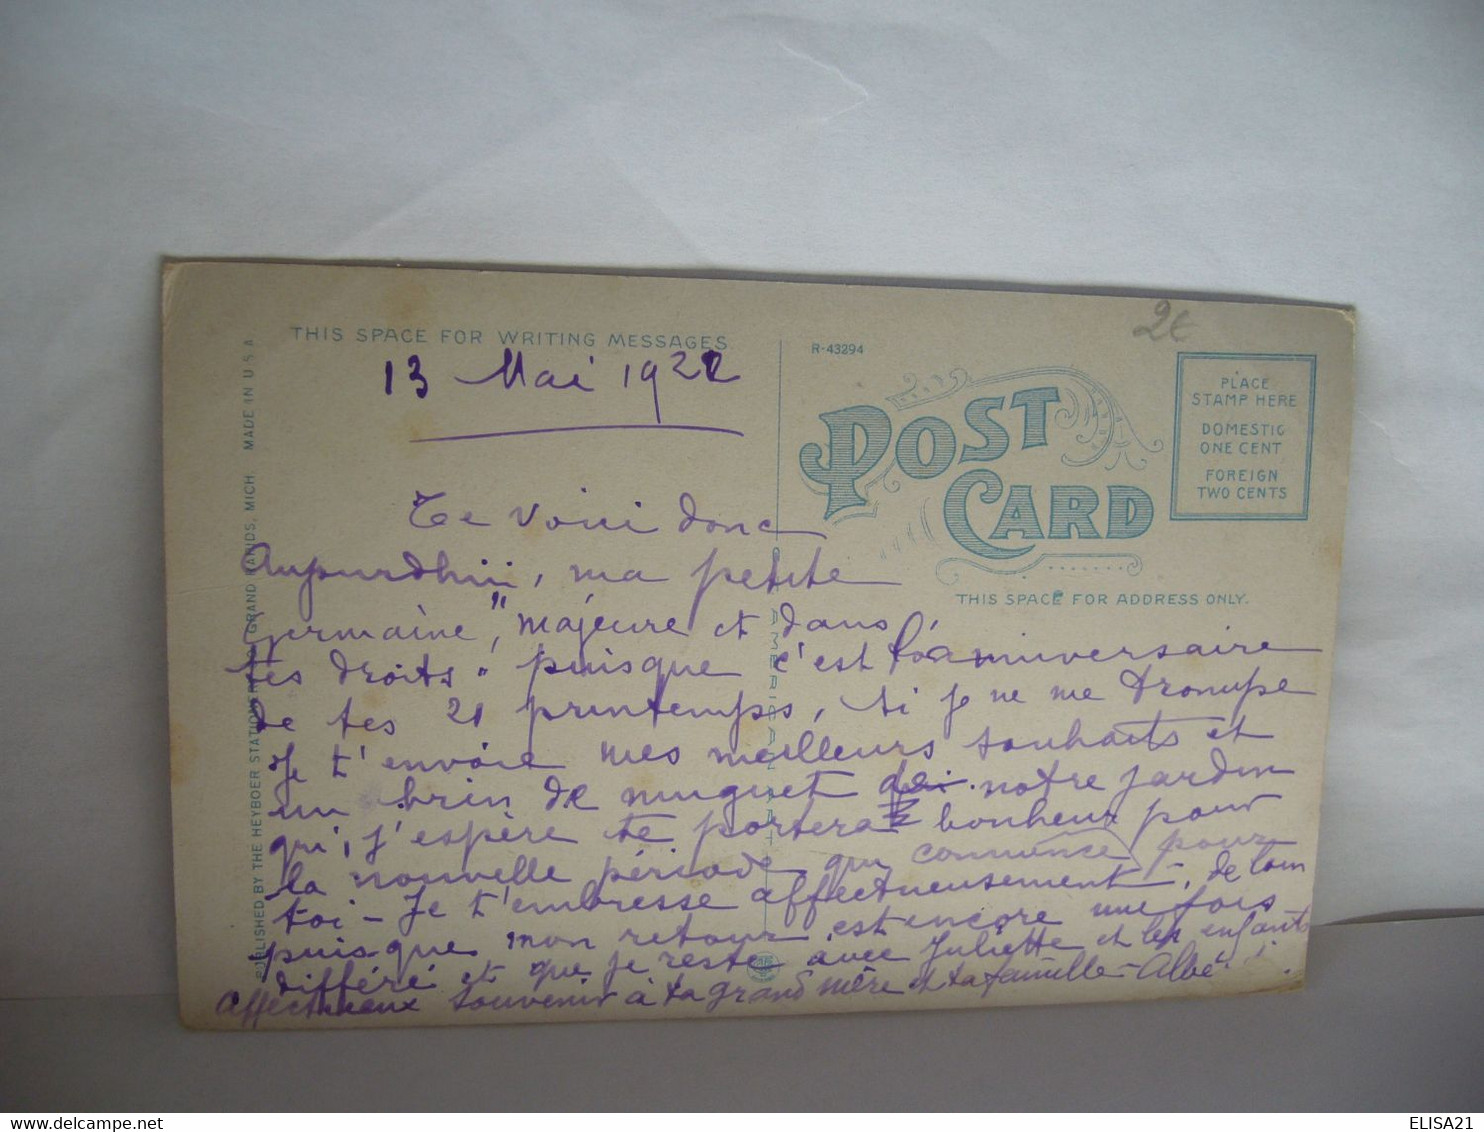 THIS SPACE FOR WRITING MESSAGES
13 Mai 1922
Te voici donc
Aujourdhui, ma petite
Germaine, "majeure et dans
tes droits" puisque c'est l'anniversaire
de tes 21 printemps, si je ne me trompe
Je t'envoie mes meilleurs souhaits et
un brin de muguet de notre jardin
qui, j'espère te portera bonheur pour
la nouvelle période qui commence pour
toi - Je t'embrasse affectueusement, de loin
puisque mon retour est encore une fois
différé et que je reste avec Juliette et les enfants
Affectueux souvenir à ta grand mère et ta famille -
PUBLISHED BY THE HEYBOER STATIONERY CO. GRAND RAPIDS, MICH MADE IN U S A
R-43294
2€
POST CARD
PLACE
STAMP HERE
DOMESTIC
ONE CENT
FOREIGN
TWO CENTS
THIS SPACE FOR ADDRESS ONLY.
ELISA21
delcampe.net